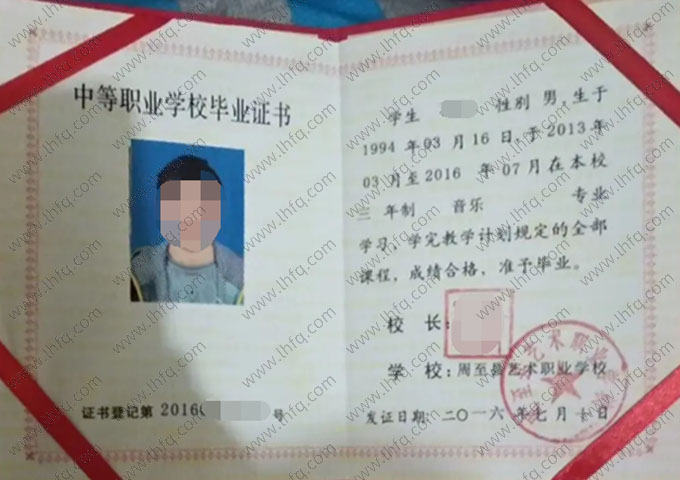 中等职业学校毕业证书
证书登记第 2016 号
学生 性别 男,生于
1994 年 03 月 16 日,于 2013 年
03 月至 2016 年 07 月在本校
三 年制 音乐 专业
学习,学完教学计划规定的全部
课程,成绩合格,准予毕业。
校 长:
学 校:周至县艺术职业学校
发证日期:二〇一六年七月 日
www.lhfq.com